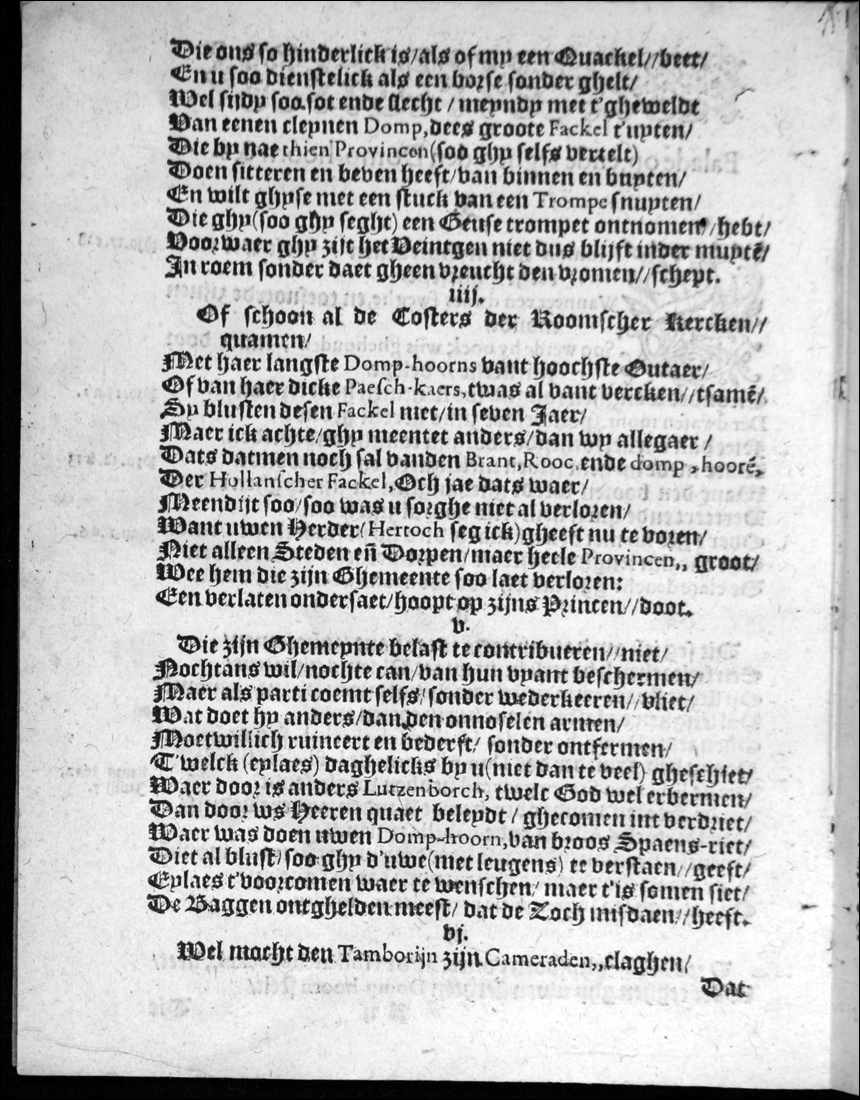 Die ons so hinderlick is/als of my een Quackel//beet/
En u soo dienstelick als een borse sonder ghelt/
Wel sijdy soo sot ende slecht / meyndy met t'gheweldt
Van eenen cleynen Domp, dees groote Fackel t'uyten/
Die by nae thien Provincen (soo ghy selfs vertelt)
Doen sitteren en beven heeft/van binnen en buyten/
En wilt ghyse met een stuck van een Trompe snuyten/
Die ghy (soo ghy seght) een Geuse trompet ontnomen//hebt/
Voorwaer ghy zijt het Veintgen niet dus blijft inder muytē/
In roem sonder daet gheen vreucht den vromen//schept.
iiij.
Of schoon al de Costers der Roomscher Kercken//
quamen/
Met haer langste Domp-hoorns vant hoochste Outaer/
Of van haer dicke Paesch-kaers, twas al vant vercken//tsamē/
Sy blusten desen Fackel niet/in seven Jaer/
Maer ick achte/ghy meentet anders/dan wy allegaer /
Dats datmen noch sal vanden Brant, Rooc, ende domp, hoorē,
Der Hollanscher Fackel, Och jae dats waer/
Meendijt soo/soo was u sorghe niet al verloren/
Want uwen Herder (Hertoch seg ick) gheeft nu te voren/
Niet alleen Steden eñ Dorpen/maer heele Provincen,, groot/
Wee hem die zijn Ghemeente soo laet verloren:
Een verlaten ondersaet/hoopt op zijns Princen//doot.
v.
Die zijn Ghemeynte belast te contribueren//niet/
Nochtans wil/nochte can/van hun vyant beschermen/
Maer als parti coemt selfs/sonder wederkeeren//vliet/
Wat doet hy anders/dan den onnoselen armen/
Moetwillich ruineert en bederft/ sonder ontfermen/
T'welck (eylaes) daghelicks by u (niet dan te veel) gheschiet/
Waer door is anders Lutzenborch, twelc God wel erbermen/
Dan door ws Heeren quaet beleydt / ghecomen int verdriet/
Waer was doen uwen Domp-hoorn, van broos Spaens-riet/
Diet al blust/soo ghy d'uwe (met leugens) te verstaen//geeft/
Eylaes t'voorcomen waer te wenschen/ maer t'is somen siet/
De Baggen ontghelden meest/ dat de Zoch misdaen//heeft.
vj.
Wel mocht den Tamborijn zijn Cameraden,,claghen/
Dat